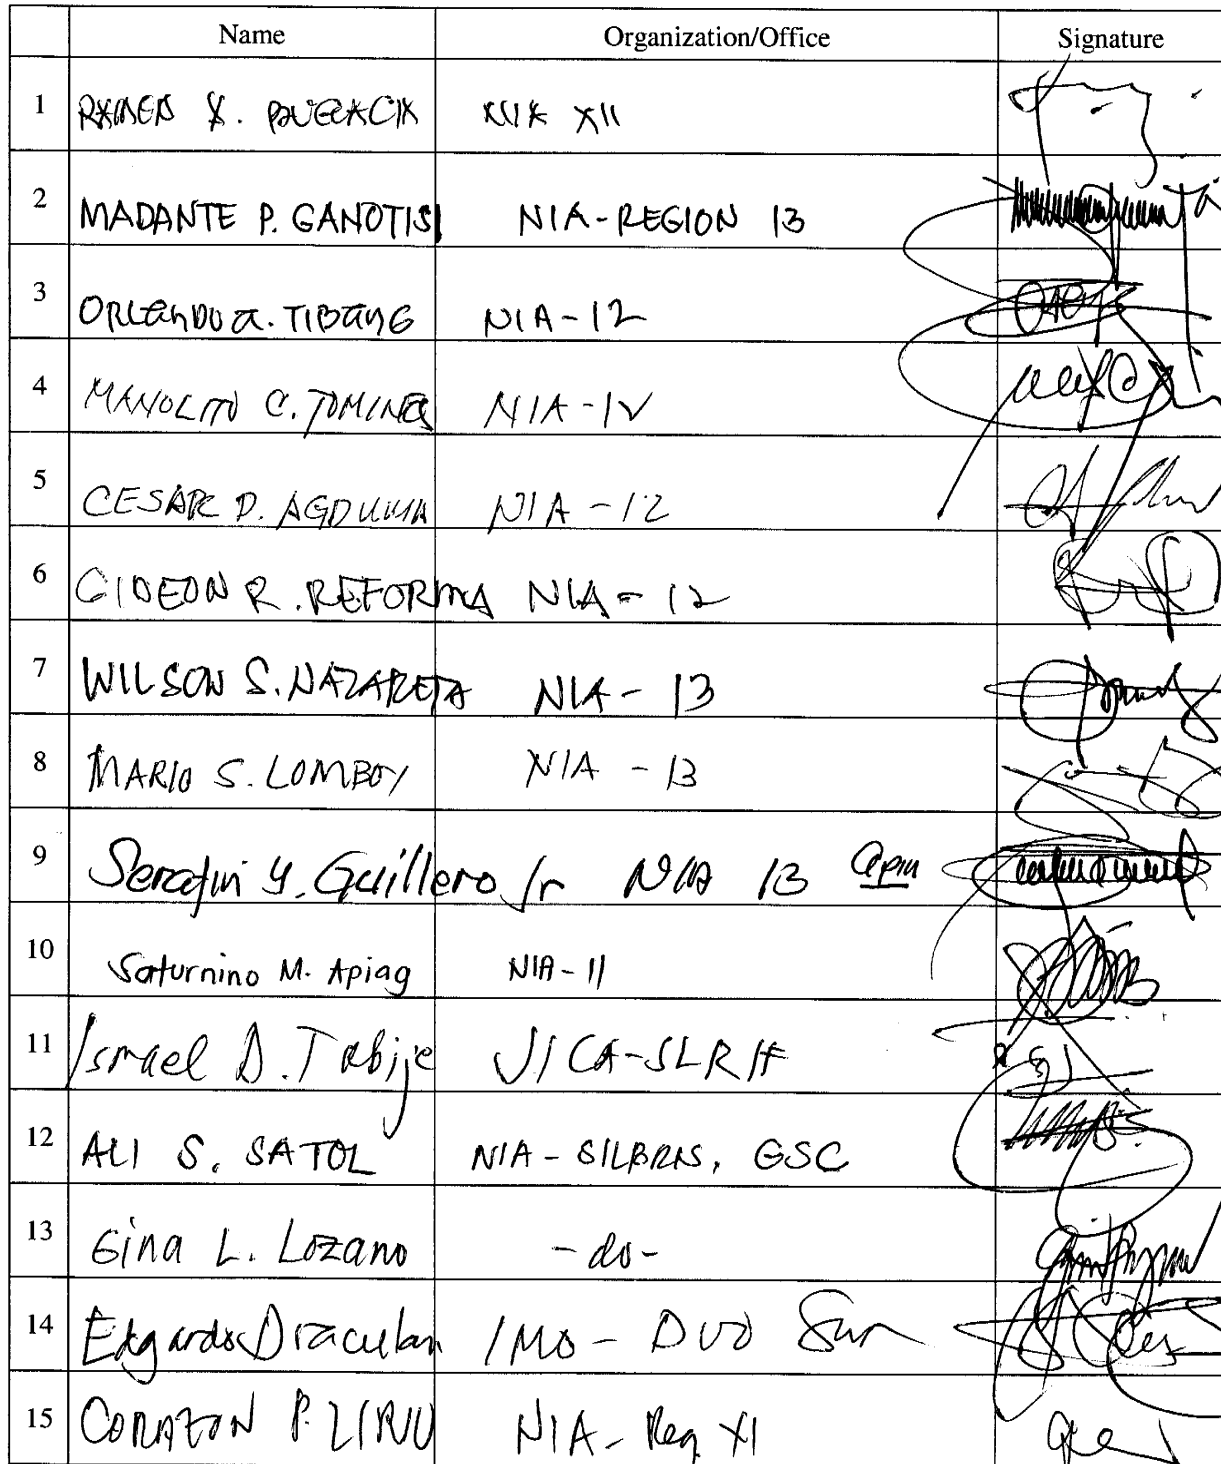 Name Organization/Office Signature
1 NIA XII
2 MADANTE P. GANOTISI NIA-REGION 13
3 ORLANDO A. TIBANG NIA-12
4 MANOLITO C. NIA-IV
5 CESAR D. AGDUMA NIA-12
6 GIDEON R. REFORMA NIA-12
7 WILSON S. NAZARETA NIA-13
8 MARIO S. LOMBOY NIA-13
9 Serafin Y. Guillero Jr NIA 13
10 Saturnino M. Apiag NIA-11
11 Ismael D. Tabije JICA-SLRIF
12 ALI S. SATOL NIA-SILBRIS, GSC
13 Gina L. Lozano -do-
14 Edgardo Draculan IMO - DVO Sur
15 CORAZON P. NIA-Reg XI